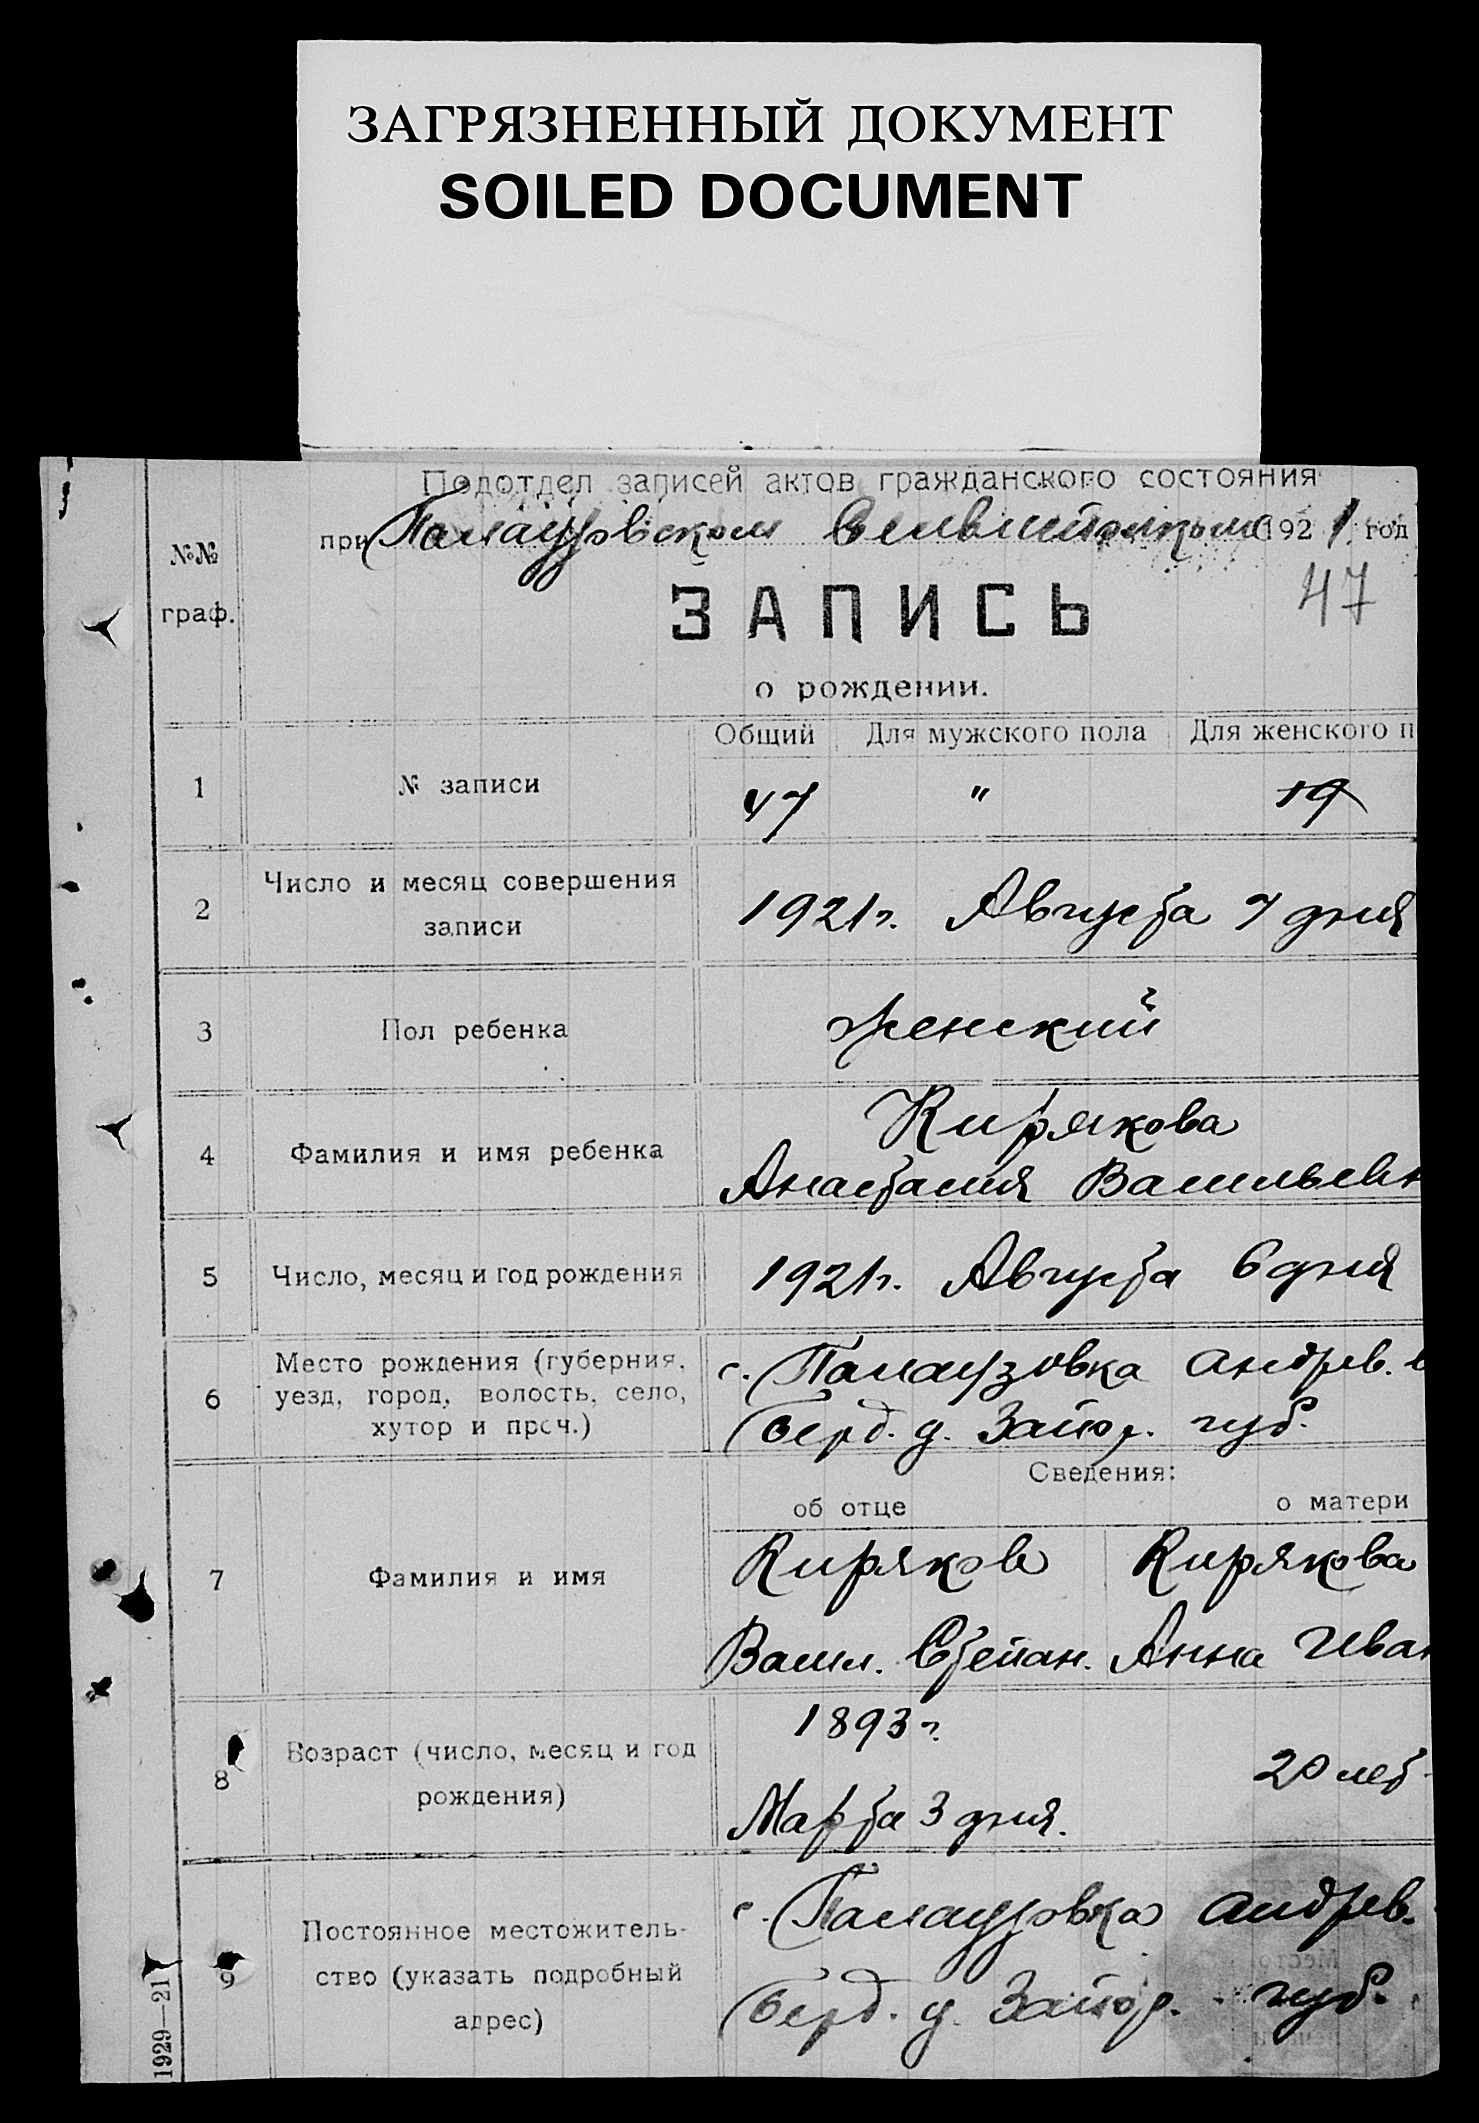 ЗАГРЯЗНЕННЫЙ ДОКУМЕНТ
SOILED DOCUMENT
Подотдел записей актов гражданского состояния
при 1921 год
№№
граф.
ЗАПИСЬ
47
о рождении.
Общий Для мужского пола Для женского п
1 № записи 47 " 19
2 Число и месяц совершения
записи
1921г. Августа 7 дня
3 Пол ребенка женский
4 Фамилия и имя ребенка
Кирякова
Анастасия Васильевн
5 Число, месяц и год рождения 1921г. Августа 6 дня
6 Место рождения (губерния,
уезд, город, волость, село,
хутор и проч.)
с. Палаузовка Андрев. в
Берд. у. Запор. губ.
Сведения:
об отце о матери
7 Фамилия и имя
Киряков Кирякова
Васил. Степан. Анна Иван
8 Возраст (число, месяц и год
рождения)
1893г.
20 лет
Марта 3 дня.
9 Постоянное местожитель-
ство (указать подробный
адрес)
с. Палаузовка Андрев.
Берд. у. Запор. губ.
1929—21